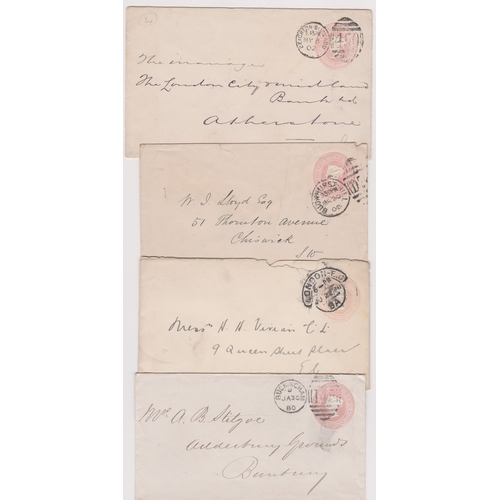 The manager
The London City & Midland
Bank Ltd
Atherstone
LEIGHTON BUZZARD
MY
02
W. J. Lloyd Esq
51 Thornton Avenue
Chiswick
S.W
BUCKHURST HILL
LONDON-E.C
Messrs H. H. Vivian
9 Queen Street Place
E.C.
BUCKINGHAM
JA 30
80
Mr A. B. Stilgoe
Adderbury Grounds
Banbury